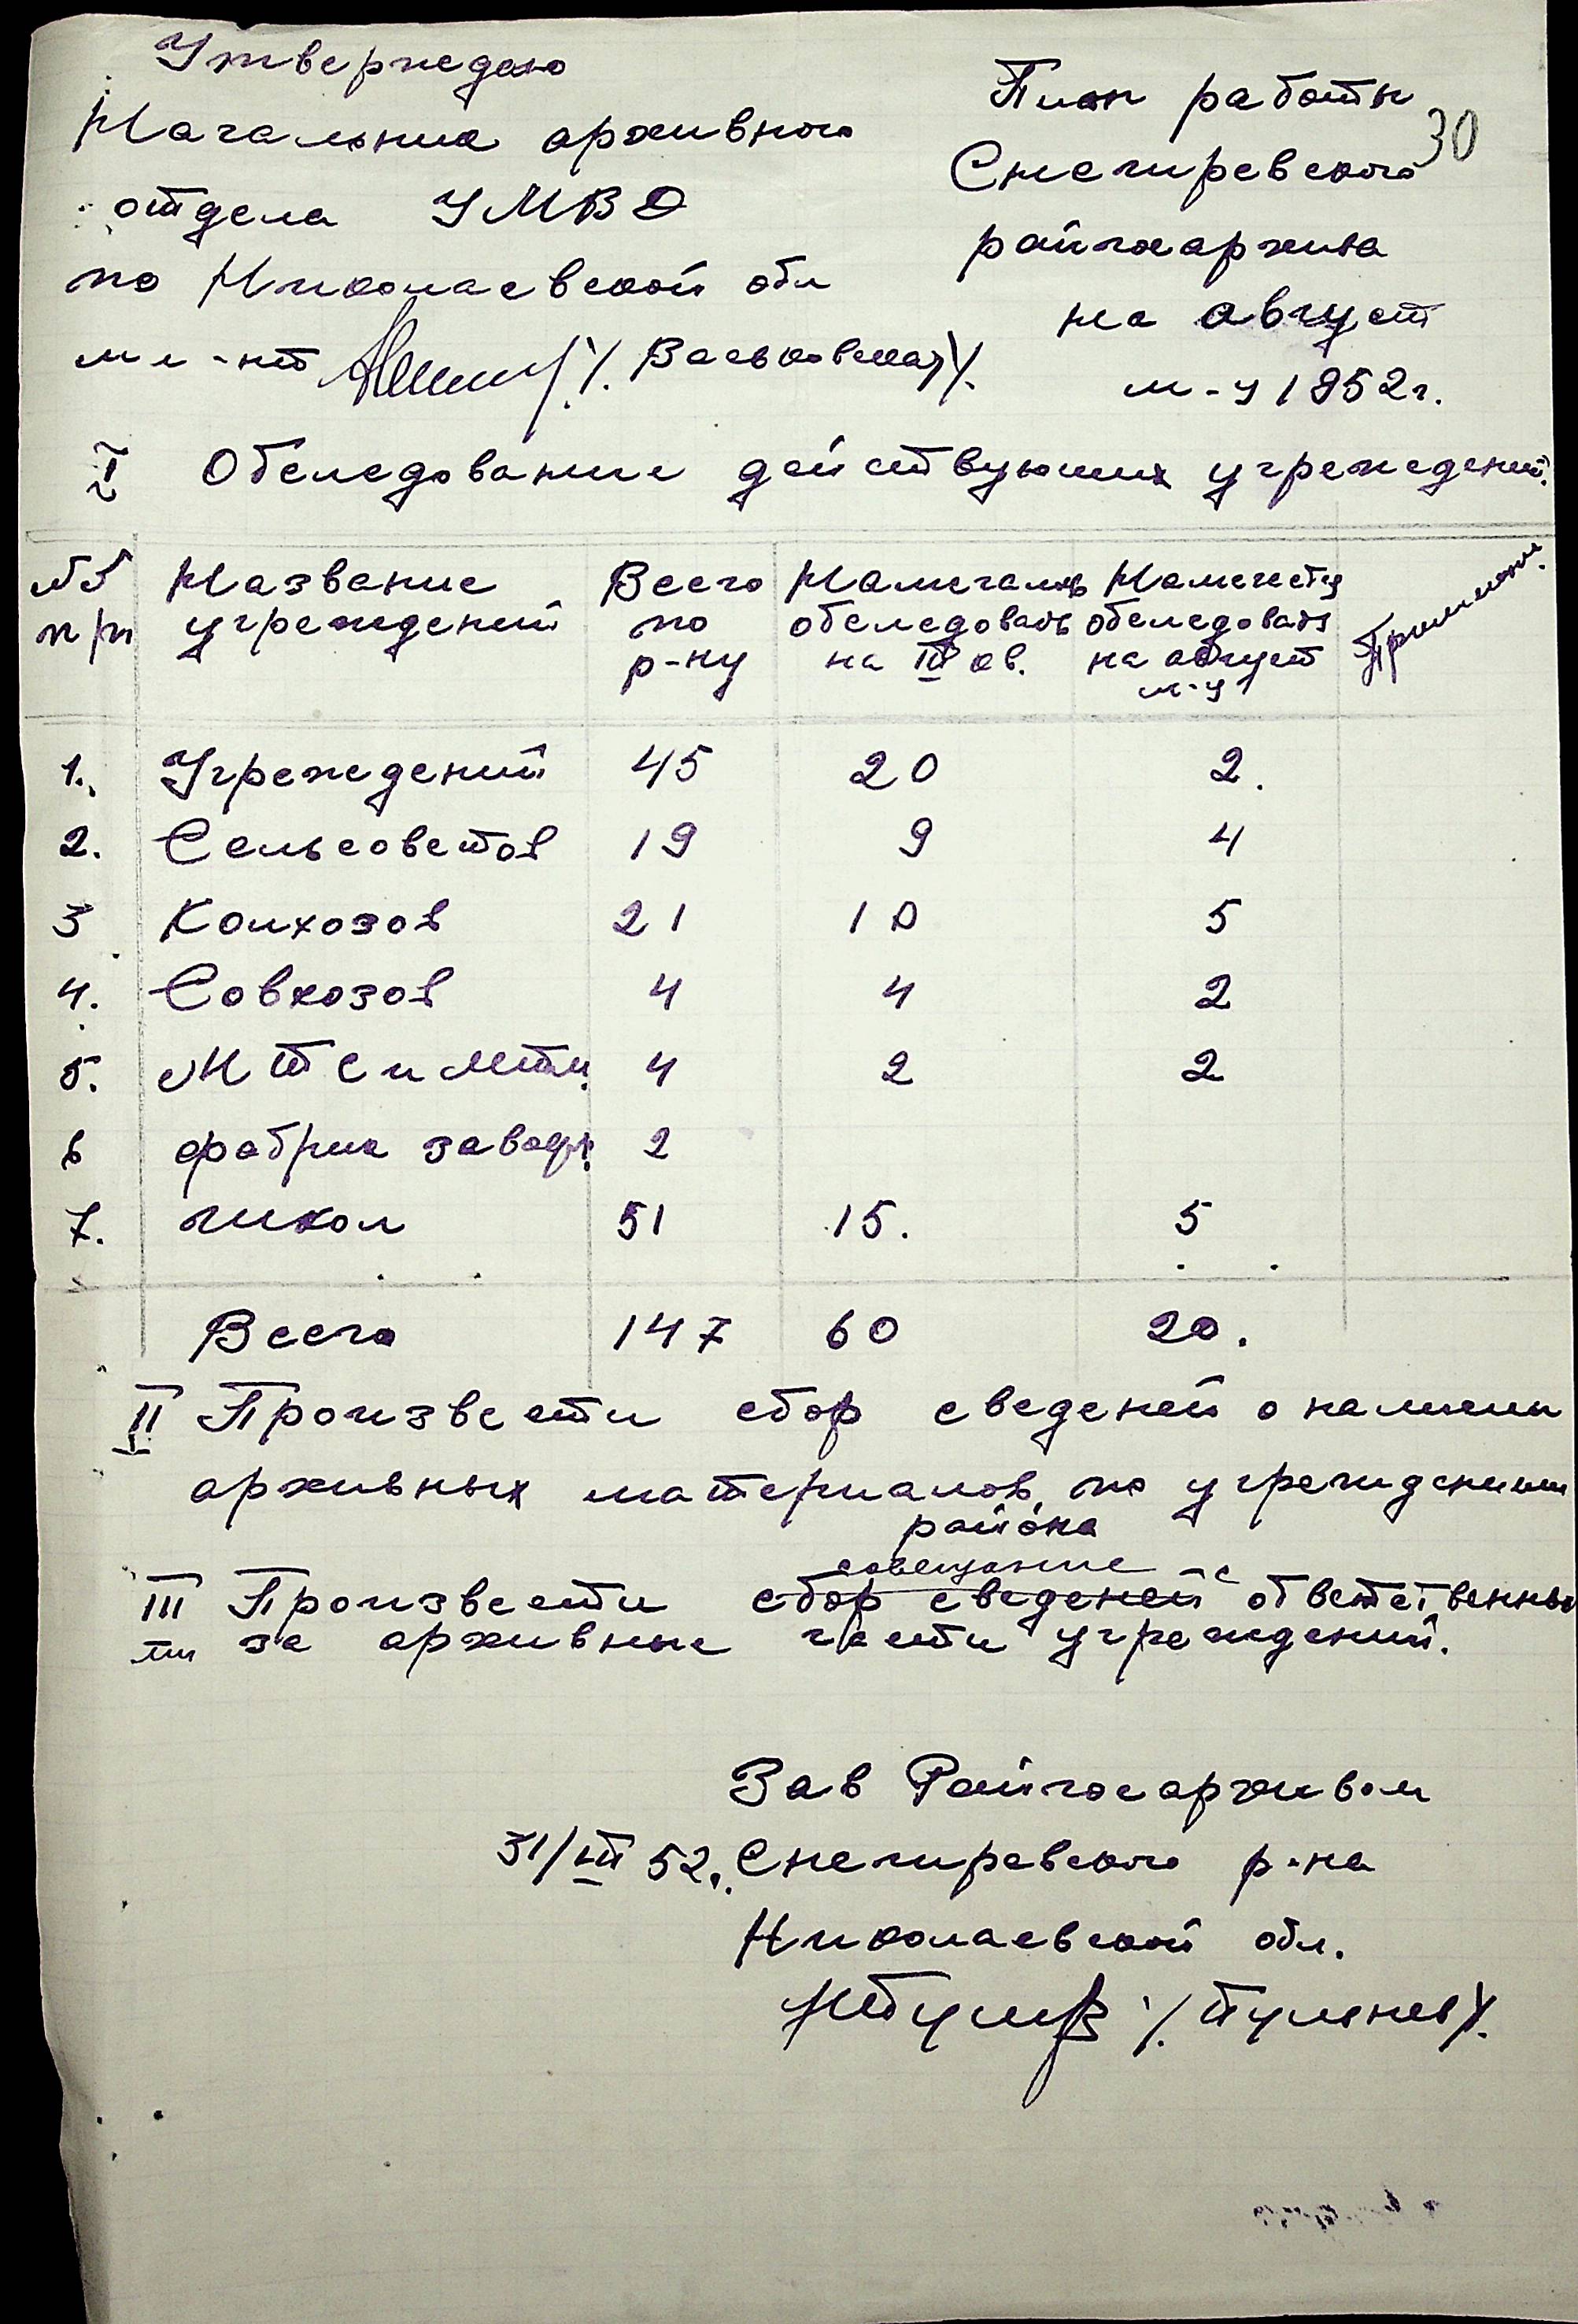 Утверждаю
Начальник архивного
отдела УМВД
по Николаевской обл
м л-нт /. Васьковская/.
План работы
30
Снегиревского
райгосархива
на август
м-ц 1952 г.
I Обследование действующих учреждений.
№№ Название Всего Намечалось Наметить Примечан.
п/п учреждений по обследовать обследовать
р-ну на III кв. на август
м-ц
1. Учреждений 45 20 2.
2. Сельсоветов 19 9 4
3 Колхозов 21 10 5
4. Совхозов 4 4 2
5. МТС и Мтм. 4 2 2
6 фабрик завод. 2
7. школ 51 15. 5
Всего 147 60 20.
II Произвести сбор сведеней о наличии
архивных материалов по учреждениям
района
совещание с
III Произвести сбор сведеней ответственны
ми за архивные части учреждений.
Зав Райгосархивом
31/VII 52. Снегиревского р-на
Николаевской обл.
/. Тулянев/.